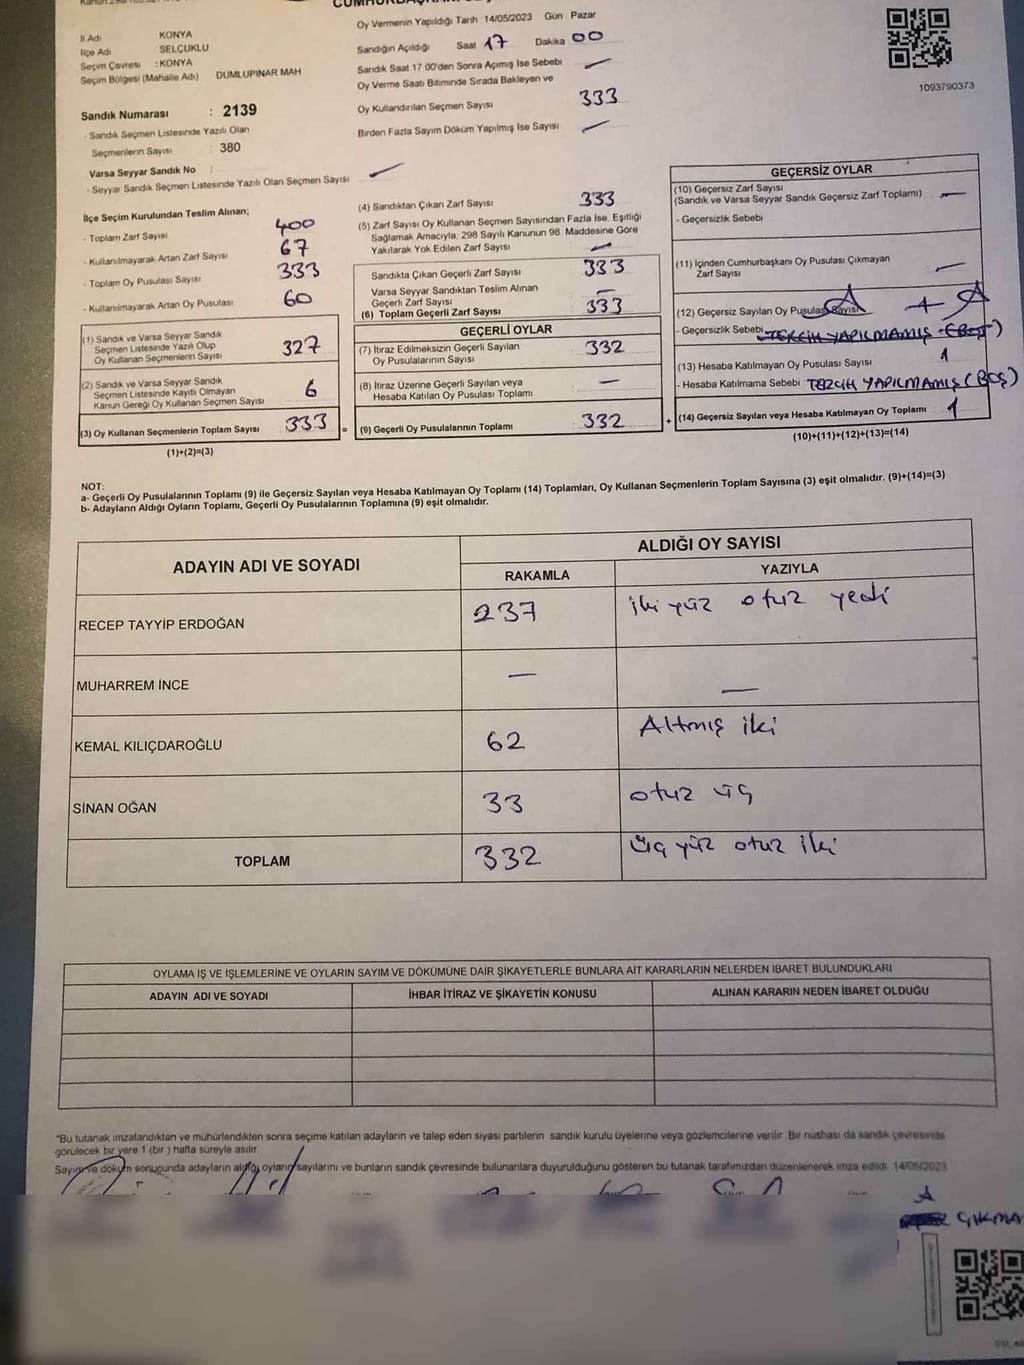 Oy Vermenin Yapıldığı Tarih 14/05/2023 Gün Pazar
İl Adı KONYA
İlçe Adı SELÇUKLU
Seçim Çevresi : KONYA
Seçim Bölgesi (Mahalle Adı) DUMLUPINAR MAH
Sandığın Açıldığı Saat 17 Dakika 00
Sandık Saat 17 00'den Sonra Açımış İse Sebebi —
Oy Verme Saati Bitiminde Sırada Bekleyen ve
Oy Kullandırılan Seçmen Sayısı 333
Birden Fazla Sayım Döküm Yapılmış İse Sayısı —
1093790373
Sandık Numarası : 2139
- Sandık Seçmen Listesinde Yazılı Olan
Seçmenlerin Sayısı : 380
Varsa Seyyar Sandık No :
- Seyyar Sandık Seçmen Listesinde Yazılı Olan Seçmen Sayısı —
İlçe Seçim Kurulundan Teslim Alınan;
- Toplam Zarf Sayısı 400
- Kullanılmayarak Artan Zarf Sayısı 67
- Toplam Oy Pusulası Sayısı 333
- Kullanılmayarak Artan Oy Pusulası 60
(1) Sandık ve Varsa Seyyar Sandık
Seçmen Listesinde Yazılı Olup
Oy Kullanan Seçmenlerin Sayısı 327
(2) Sandık ve Varsa Seyyar Sandık
Seçmen Listesinde Kayıtlı Olmayan
Kanun Gereği Oy Kullanan Seçmen Sayısı 6
(3) Oy Kullanan Seçmenlerin Toplam Sayısı 333
(1)+(2)=(3)
=
(4) Sandıktan Çıkan Zarf Sayısı 333
(5) Zarf Sayısı Oy Kullanan Seçmen Sayısından Fazla İse, Eşitliği
Sağlamak Amacıyla, 298 Sayılı Kanunun 98. Maddesine Göre
Yakılarak Yok Edilen Zarf Sayısı —
Sandıkta Çıkan Geçerli Zarf Sayısı 333
Varsa Seyyar Sandıktan Teslim Alınan
Geçerli Zarf Sayısı : —
(6) Toplam Geçerli Zarf Sayısı : 333
GEÇERLİ OYLAR
(7) İtiraz Edilmeksizin Geçerli Sayılan
Oy Pusulalarının Sayısı : 332
(8) İtiraz Üzerine Geçerli Sayılan veya
Hesaba Katılan Oy Pusulası Toplamı : —
(9) Geçerli Oy Pusulalarının Toplamı : 332
+
GEÇERSİZ OYLAR
(10) Geçersiz Zarf Sayısı
(Sandık ve Varsa Seyyar Sandık Geçersiz Zarf Toplamı) —
- Geçersizlik Sebebi :
(11) İçinden Cumhurbaşkanı Oy Pusulası Çıkmayan
Zarf Sayısı : —
(12) Geçersiz Sayılan Oy Pusulası Sayısı
- Geçersizlik Sebebi TERCİH YAPILMAMIŞ (BOŞ)
(13) Hesaba Katılmayan Oy Pusulası Sayısı 1
- Hesaba Katılmama Sebebi TERCİH YAPILMAMIŞ (BOŞ)
(14) Geçersiz Sayılan veya Hesaba Katılmayan Oy Toplamı 1
(10)+(11)+(12)+(13)=(14)
NOT:
a- Geçerli Oy Pusulalarının Toplamı (9) ile Geçersiz Sayılan veya Hesaba Katılmayan Oy Toplamı (14) Toplamları, Oy Kullanan Seçmenlerin Toplam Sayısına (3) eşit olmalıdır. (9)+(14)=(3)
b- Adayların Aldığı Oyların Toplamı, Geçerli Oy Pusulalarının Toplamına (9) eşit olmalıdır.
ADAYIN ADI VE SOYADI ALDIĞI OY SAYISI
RAKAMLA YAZIYLA
RECEP TAYYİP ERDOĞAN 237 iki yüz otuz yedi
MUHARREM İNCE — —
KEMAL KILIÇDAROĞLU 62 Altmış iki
SİNAN OĞAN 33 otuz üç
TOPLAM 332 üç yüz otuz iki
OYLAMA İŞ VE İŞLEMLERİNE VE OYLARIN SAYIM VE DÖKÜMÜNE DAİR ŞİKAYETLERLE BUNLARA AİT KARARLARIN NELERDEN İBARET BULUNDUKLARI
ADAYIN ADI VE SOYADI İHBAR İTİRAZ VE ŞİKAYETİN KONUSU ALINAN KARARIN NEDEN İBARET OLDUĞU
*Bu tutanak imzalandıktan ve mühürlendikten sonra seçime katılan adayların ve talep eden siyasi partilerin sandık kurulu üyelerine veya gözlemcilerine verilir. Bir nüshası da sandık çevresinde
görülecek bir yere 1 (bir ) hafta süreyle asılır.
Sayım ve döküm sonucunda adayların aldığı oyların sayılarını ve bunların sandık çevresinde bulunanlara duyurulduğunu gösteren bu tutanak tarafımızdan düzenlenerek imza edildi. 14/05/2023
ÇIKMA